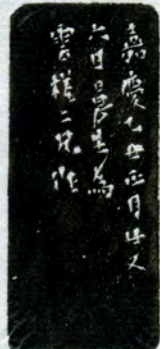 嘉慶乙丑正月廿又
六日曼生為
雲樵二兄作